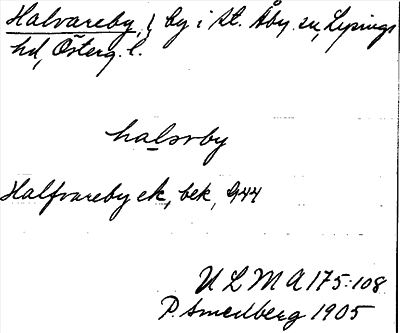 Halvareby, by i St. Åby sn, Lysings
hd, Österg. l.
halsrby
Halfvareby ek, bek, 944
ULMA 175:108
P. Smedberg 1905